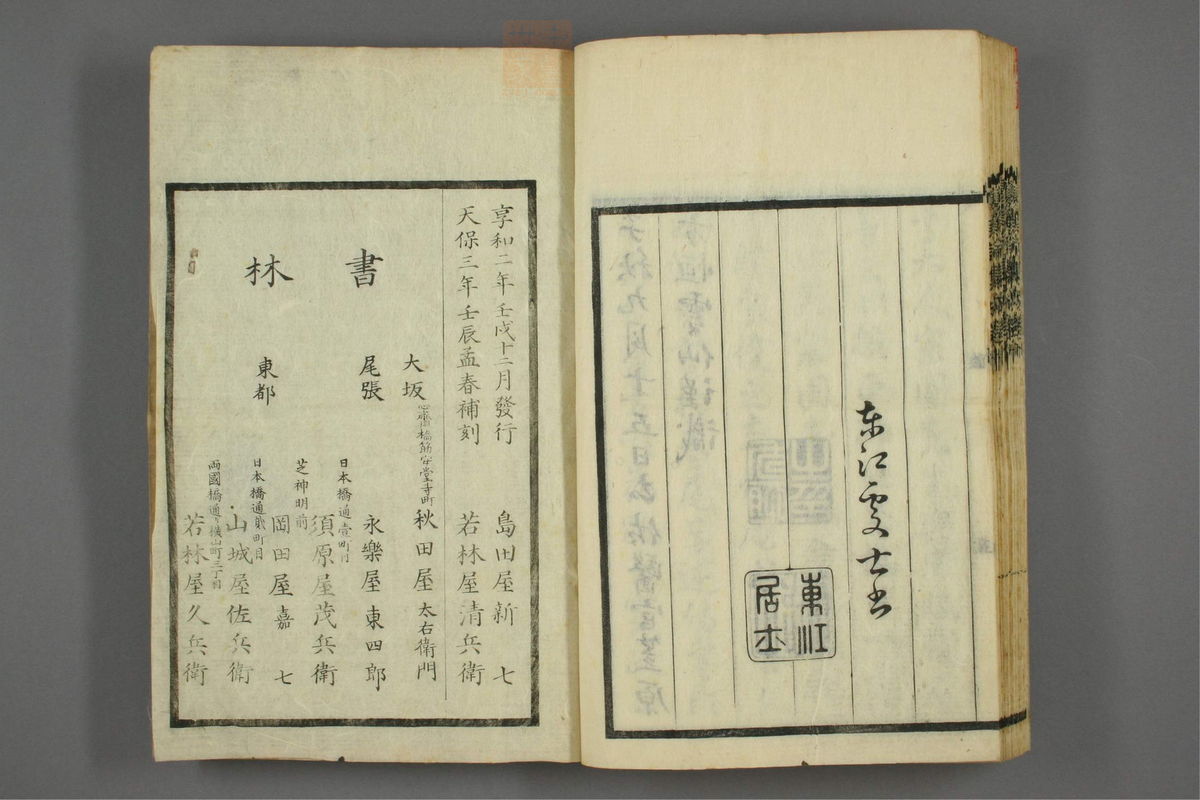 東江
居士
享和二年壬戌十二月發行 島田屋新七
天保三年壬辰孟春補刻 若林屋清兵衛
書林
大坂 心齋橋筋安堂寺町 秋田屋太右衛門
尾張 永樂屋東四郎
東都 日本橋通壹町目 須原屋茂兵衛
芝神明前 岡田屋嘉七
日本橋通貳町目 山城屋佐兵衛
両國橋通横山町三丁目 若林屋久兵衛